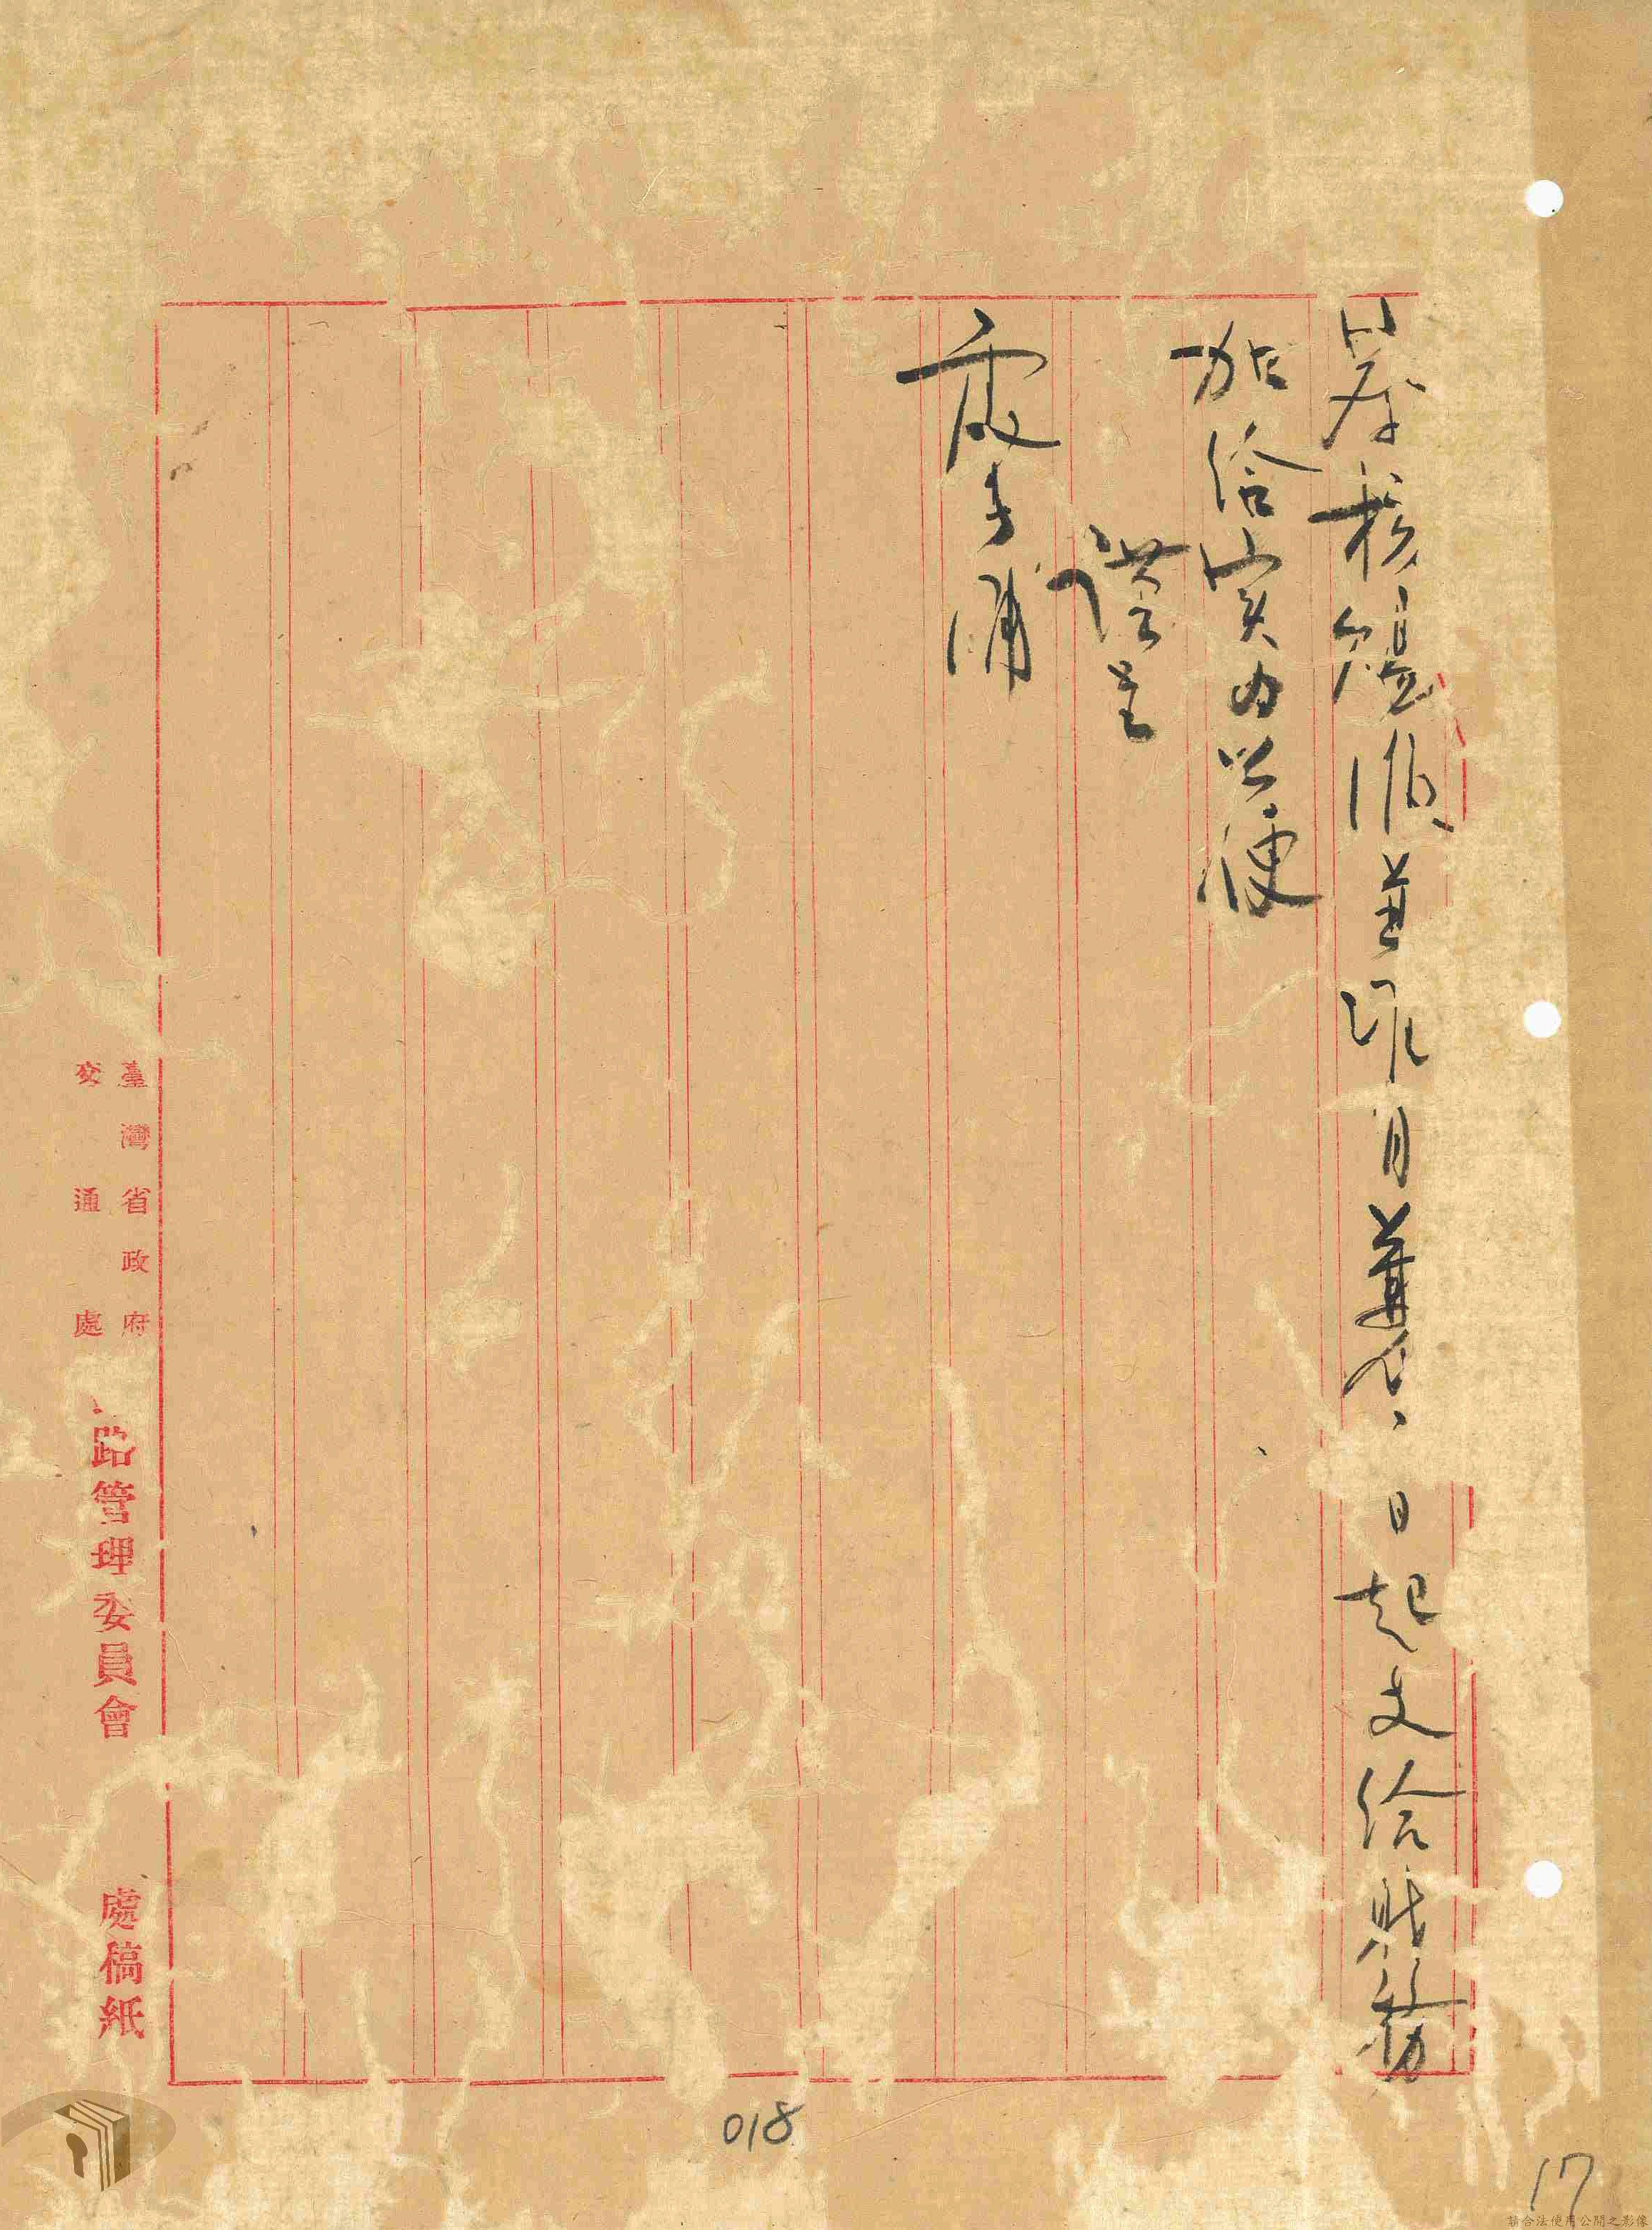 察核賜准並准自
日起支給財務
加給實為公便
謹呈
處長
臺灣省政府
交通處
路管理委員會
處稿紙
018
17
請合法使用公開之影像